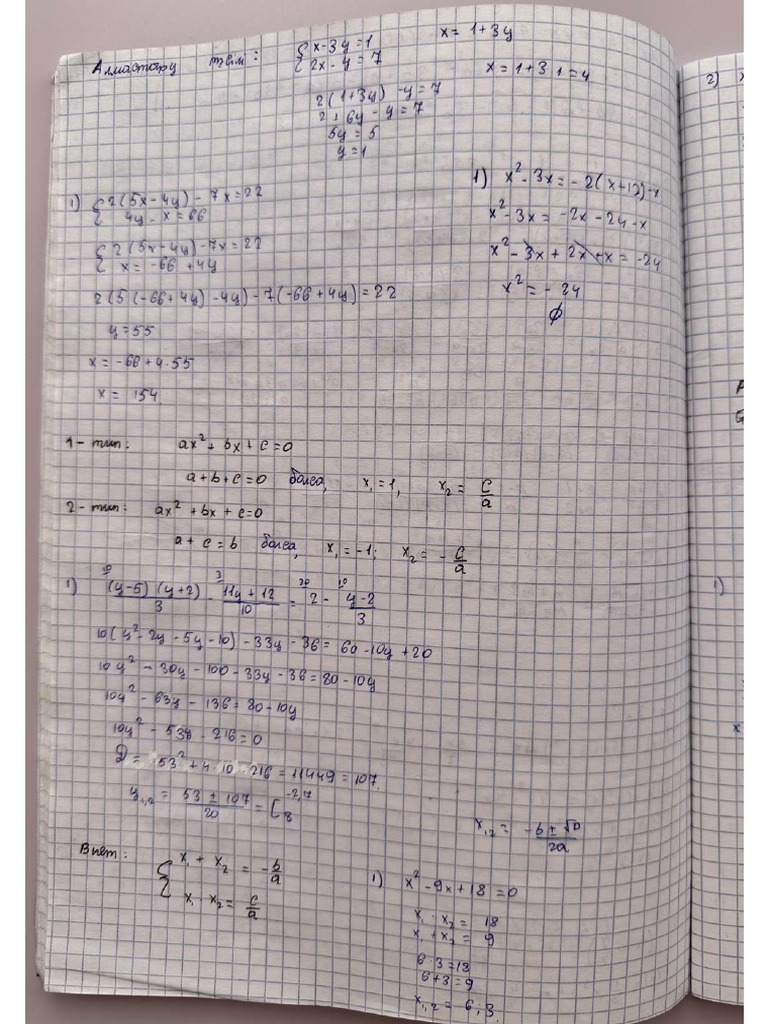 Алмастыру тәсілі: { x-3y=1
2x-y=7
x=1+3y
x=1+3·1=4
2(1+3y)-y=7
2+6y-y=7
5y=5
y=1
1) { 2(5x-4y)-7x=22
4y-x=66
{ 2(5x-4y)-7x=22
x=-66+4y
2(5(-66+4y)-4y)-7(-66+4y)=22
y=55
x=-66+4·55
x=154
1) x²-3x=-2(x+12)-x
x²-3x=-2x-24-x
x²-3x+2x+x=-24
x²=-24
∅
1-тип: ax²+bx+c=0
a+b+c=0 болса, x₁=1, x₂=c/a
2-тип: ax²+bx+c=0
a+c=b болса, x₁=-1; x₂=-c/a
1) (y-5)(y+2)/3 - 11y+12/10 = 2 - y-2/3
10(y²-2y-5y-10)-33y-36=60-10y+20
10y²-30y-100-33y-36=80-10y
10y²-63y-136=80-10y
10y²-53y-216=0
D=53²+4·10·216=11449=107
y₁,₂=53±107/20=[-2,7
8
x₁,₂=-b±√D/2a
Виет: { x₁+x₂=-b/a
x₁·x₂=c/a
1) x²-9x+18=0
x₁·x₂=18
x₁+x₂=9
6·3=18
6+3=9
x₁,₂=6;3
2)
1)
x